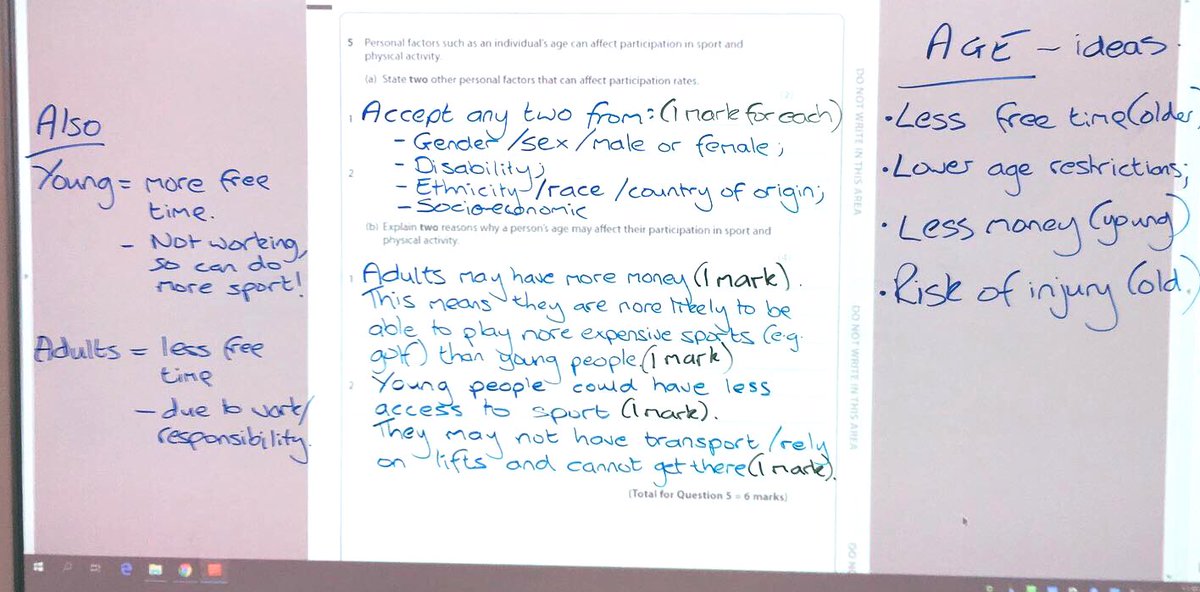 Also
Young = more free
time.
- Not working,
so can do
more sport!
Adults = less free
time
- due to work/
responsibility.
5 Personal factors such as an individual's age can affect participation in sport and
physical activity.
(a) State two other personal factors that can affect participation rates.
1 Accept any two from: (1 mark for each)
- Gender/sex/male or female;
- Disability;
2
- Ethnicity/race/country of origin;
- Socio-economic
(b) Explain two reasons why a person's age may affect their participation in sport and
physical activity.
1 Adults may have more money (1 mark).
This means they are more likely to be
able to play more expensive sports (e.g.
golf) than young people. (1 mark)
2 Young people could have less
access to sport (1 mark).
They may not have transport/rely
on lifts and cannot get there (1 mark).
(Total for Question 5 = 6 marks)
DO NOT WRITE IN THIS AREA
DO NOT WRITE IN THIS AREA
DO NO
AGE - ideas.
• Less free time (older)
• Lower age restrictions;
• Less money (young)
• Risk of injury (old.)